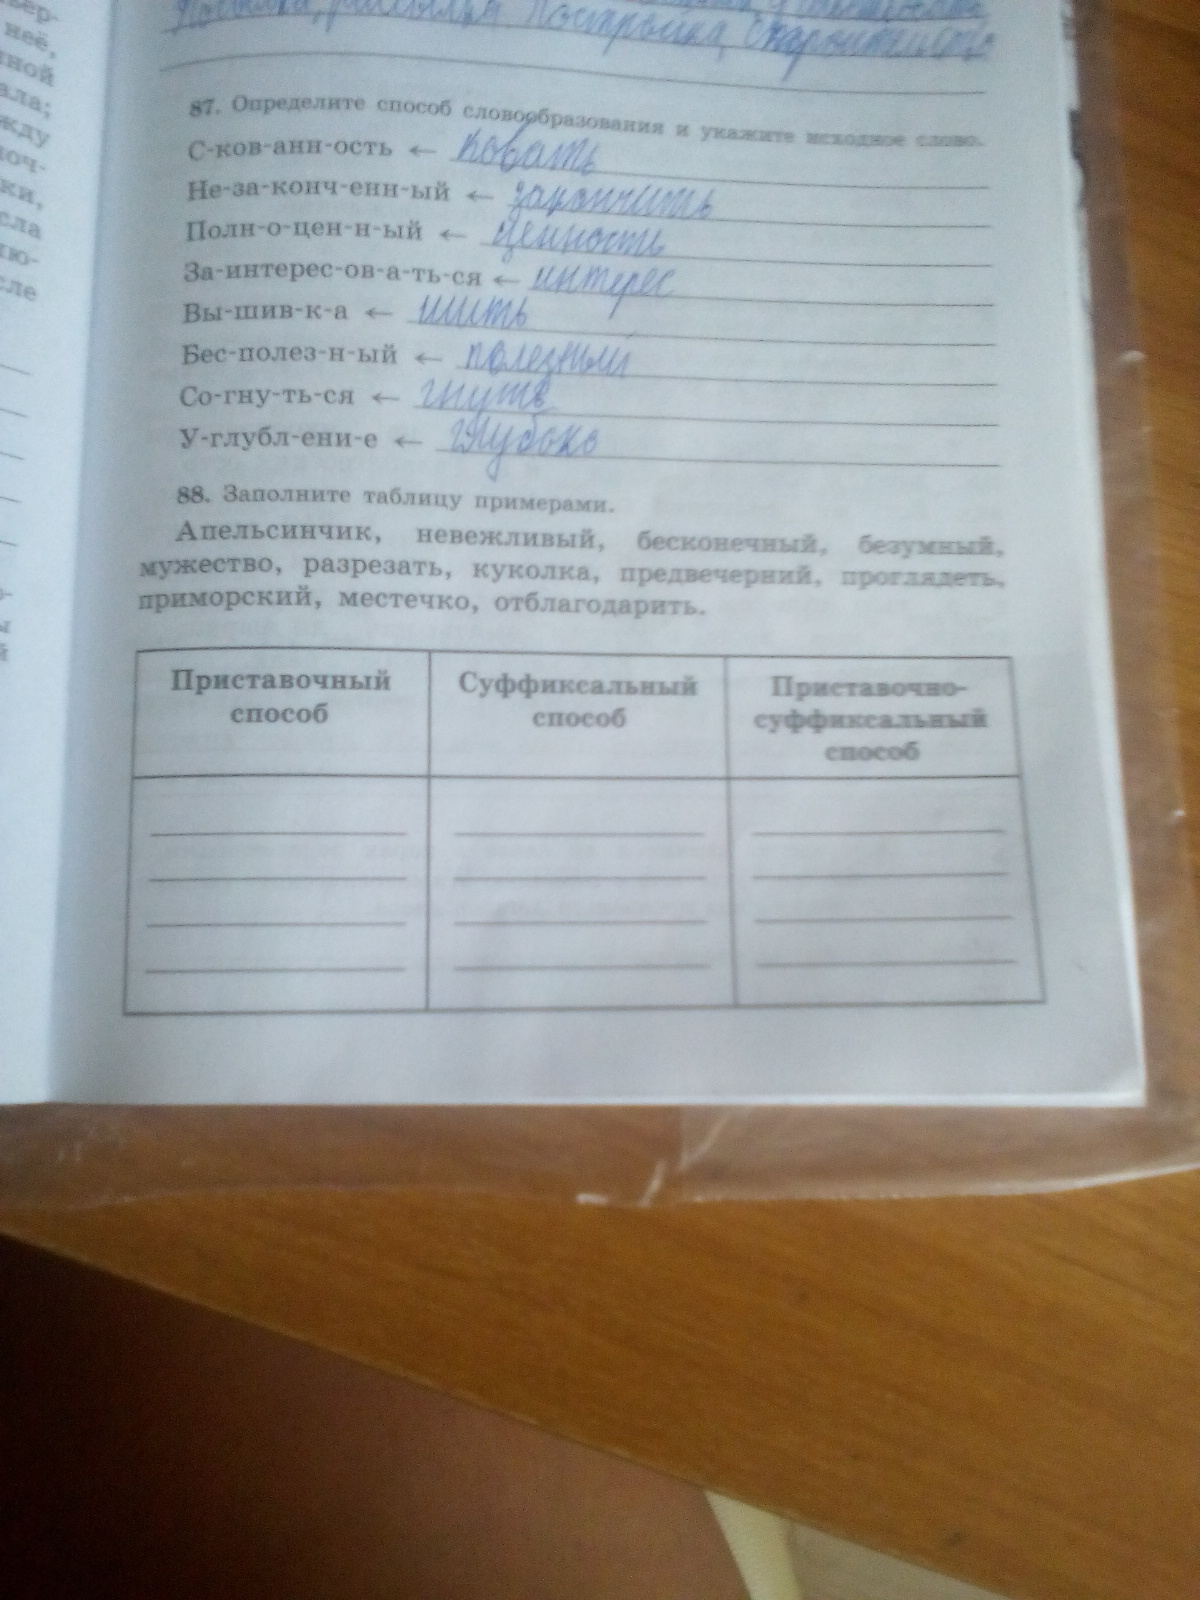 вер-
неё,
ной
ала;
жду
юч-
ки,
сла
ю-
сле
Посылка, рассылка постройка
87. Определите способ словообразования и укажите исходное слово.
С-ков-анн-ость ← ковать
Не-за-конч-енн-ый ← закончить
Полн-о-цен-н-ый ← ценность
За-интерес-ов-а-ть-ся ← интерес
Вы-шив-к-а ← шить
Бес-полез-н-ый ← полезный
Со-гну-ть-ся ← гнуть
У-глубл-ени-е ← глубоко
88. Заполните таблицу примерами.
Апельсинчик, невежливый, бесконечный, безумный,
мужество, разрезать, куколка, предвечерний, проглядеть,
приморский, местечко, отблагодарить.
Приставочный
способ
Суффиксальный
способ
Приставочно-
суффиксальный
способ